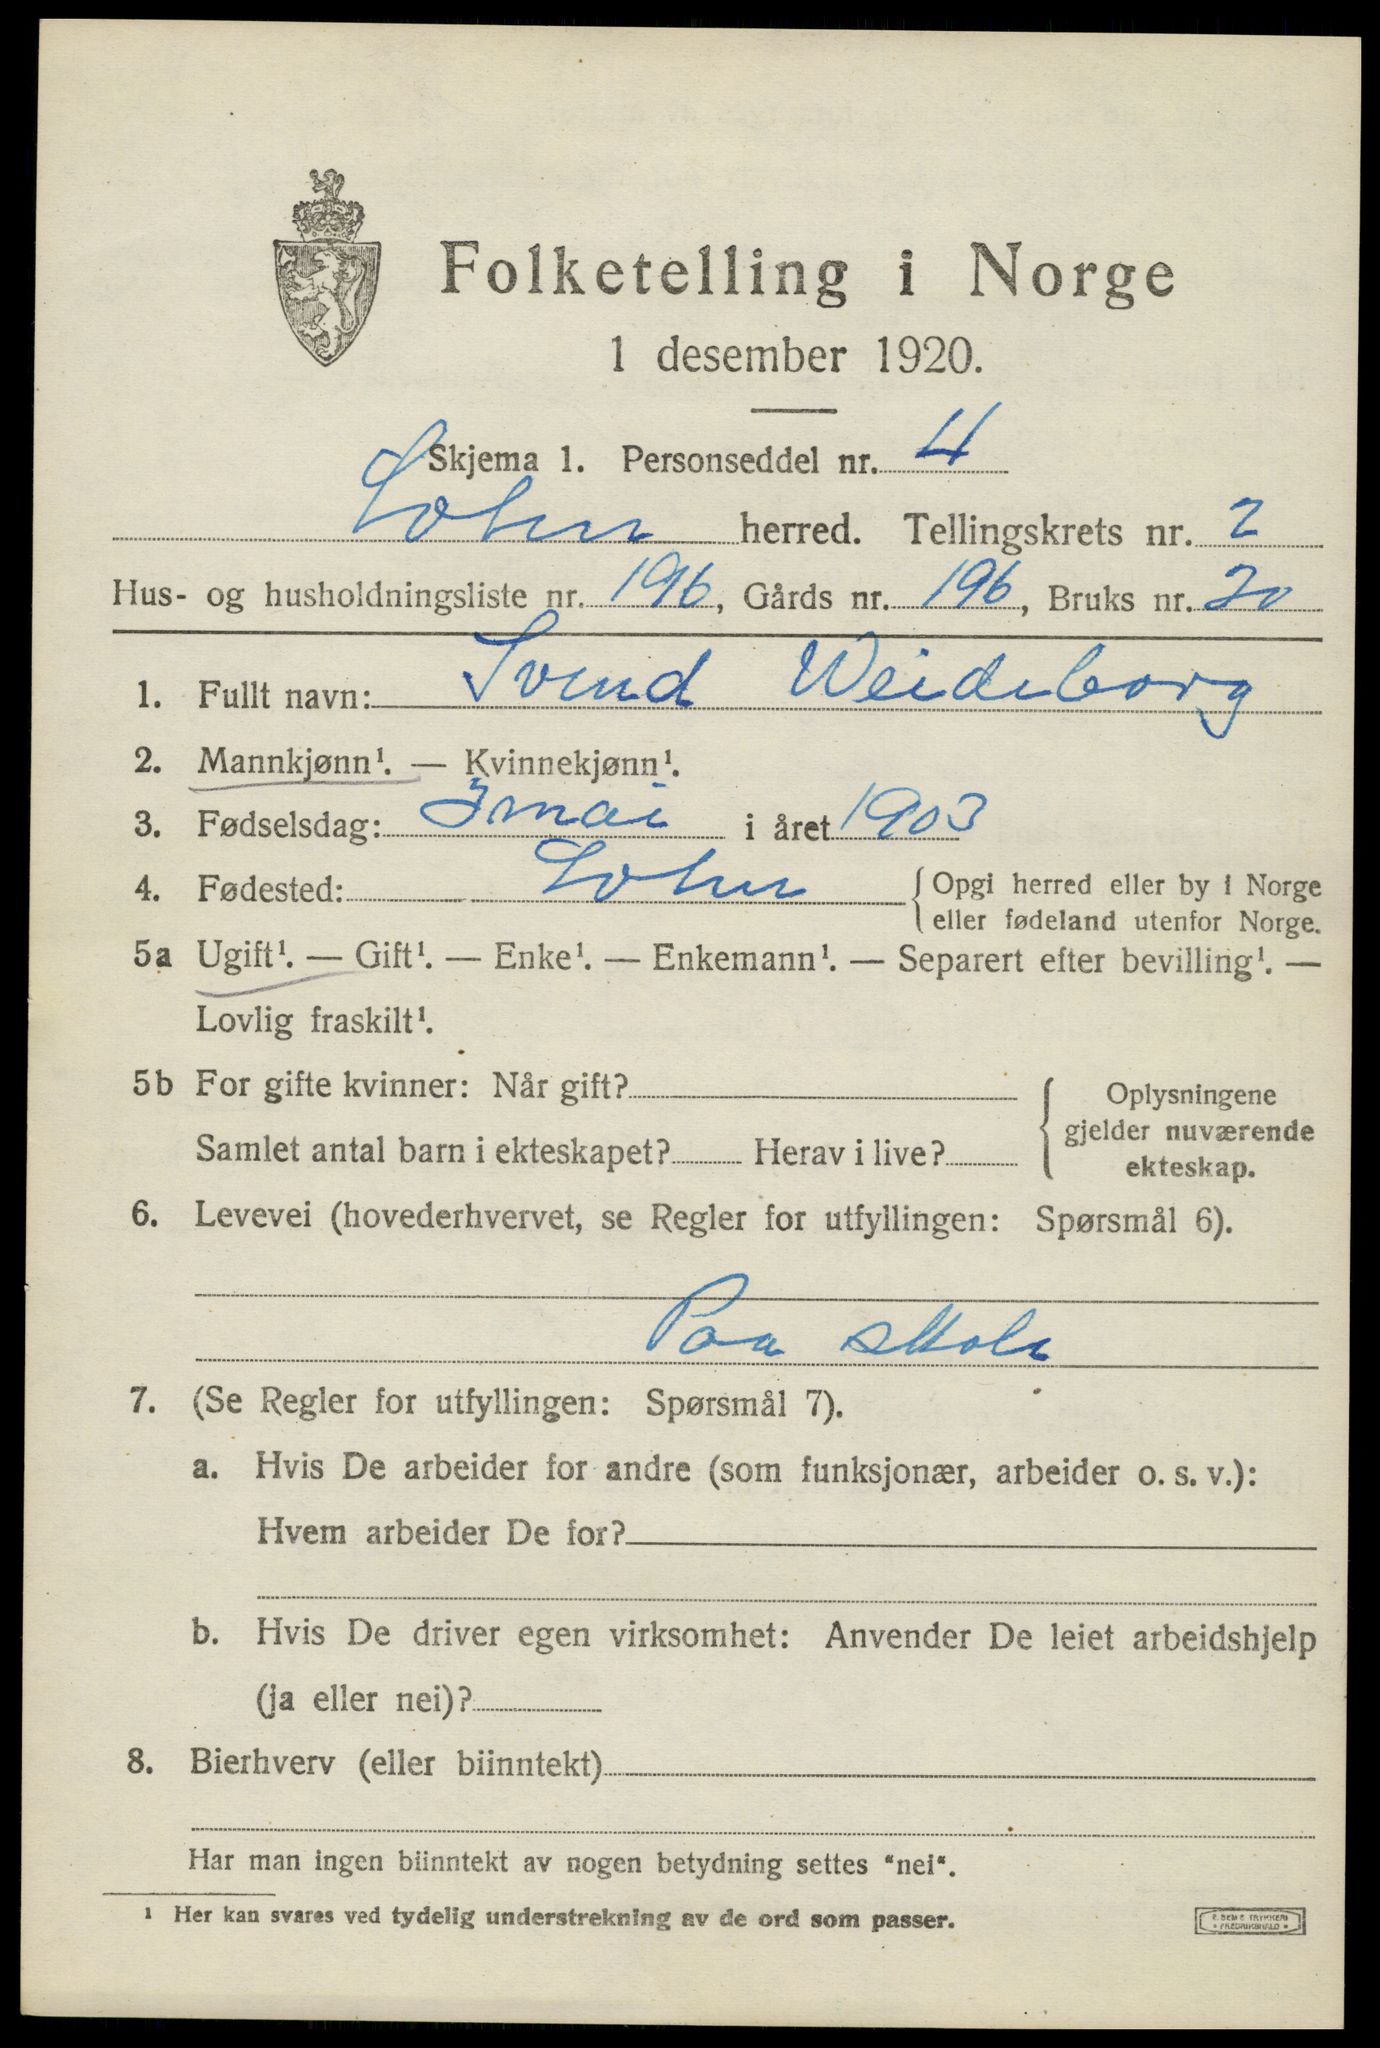 Folketelling i Norge
1 desember 1920.
Skjema 1. Personseddel nr. 4
Løten herred. Tellingskrets nr. 2
Hus- og husholdningsliste nr. 196, Gårds nr. 196, Bruks nr. 20
1. Fullt navn: Svend Weideborg
2. Mannkjønn¹. — Kvinnekjønn¹.
3. Fødselsdag: 3 mai i året 1903
4. Fødested: Løten { Opgi herred eller by i Norge
eller fødeland utenfor Norge.
5a Ugift¹. — Gift¹. — Enke¹. — Enkemann¹. — Separert efter bevilling¹. —
Lovlig fraskilt¹.
5b For gifte kvinner: Når gift?
Samlet antal barn i ekteskapet? Herav i live?
{ Oplysningene
gjelder nuværende
ekteskap.
6. Levevei (hovederhvervet, se Regler for utfyllingen: Spørsmål 6).
Paa skole
7. (Se Regler for utfyllingen: Spørsmål 7).
a. Hvis De arbeider for andre (som funksjonær, arbeider o. s. v.):
Hvem arbeider De for?
b. Hvis De driver egen virksomhet: Anvender De leiet arbeidshjelp
(ja eller nei)?
8. Bierhverv (eller biinntekt)
Har man ingen biinntekt av nogen betydning settes "nei".
¹ Her kan svares ved tydelig understrekning av de ord som passer.
E. SEM'S TRYKKERI
* FREDRIKSHALD *